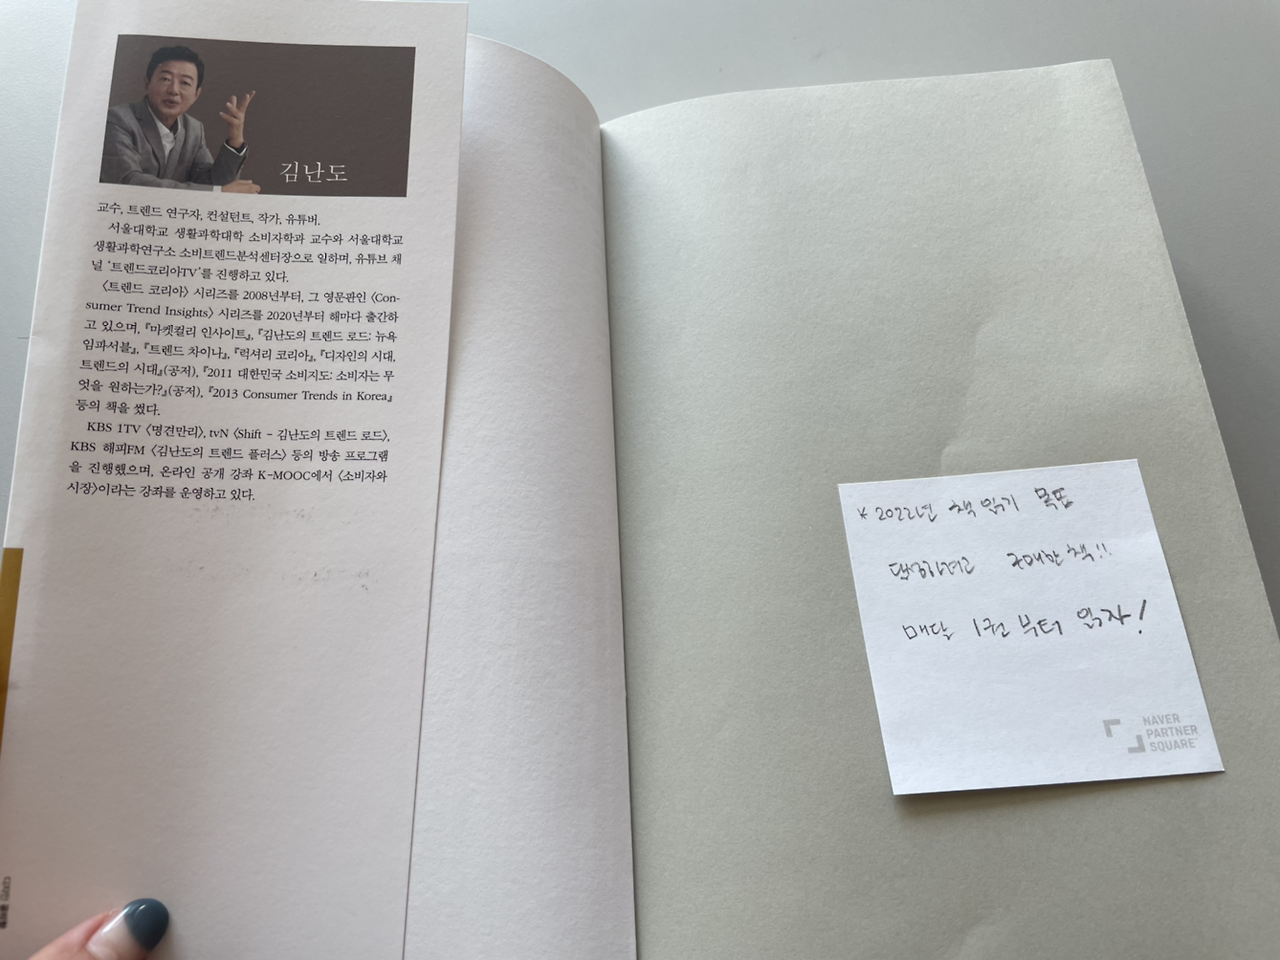 김난도
교수, 트렌드 연구자, 컨설턴트, 작가, 유튜버.
서울대학교 생활과학대학 소비자학과 교수와 서울대학교
생활과학연구소 소비트렌드분석센터장으로 일하며, 유튜브 채
널 '트렌드코리아TV'를 진행하고 있다.
〈트렌드 코리아〉 시리즈를 2008년부터, 그 영문판인 〈Con-
sumer Trend Insights〉 시리즈를 2020년부터 해마다 출간하
고 있으며, 『마켓컬리 인사이트』, 『김난도의 트렌드 로드: 뉴욕
임파서블』, 『트렌드 차이나』, 『럭셔리 코리아』, 『디자인의 시대,
트렌드의 시대』(공저), 『2011 대한민국 소비지도: 소비자는 무
엇을 원하는가?』(공저), 『2013 Consumer Trends in Korea』
등의 책을 썼다.
KBS 1TV 〈명견만리〉, tvN 〈Shift – 김난도의 트렌드 로드〉,
KBS 해피FM 〈김난도의 트렌드 플러스〉 등의 방송 프로그램
을 진행했으며, 온라인 공개 강좌 K-MOOC에서 〈소비자와
시장〉이라는 강좌를 운영하고 있다.
* 2022년 책 읽기 목표
매달 1권 부터 읽자!
NAVER
PARTNER
SQUARE